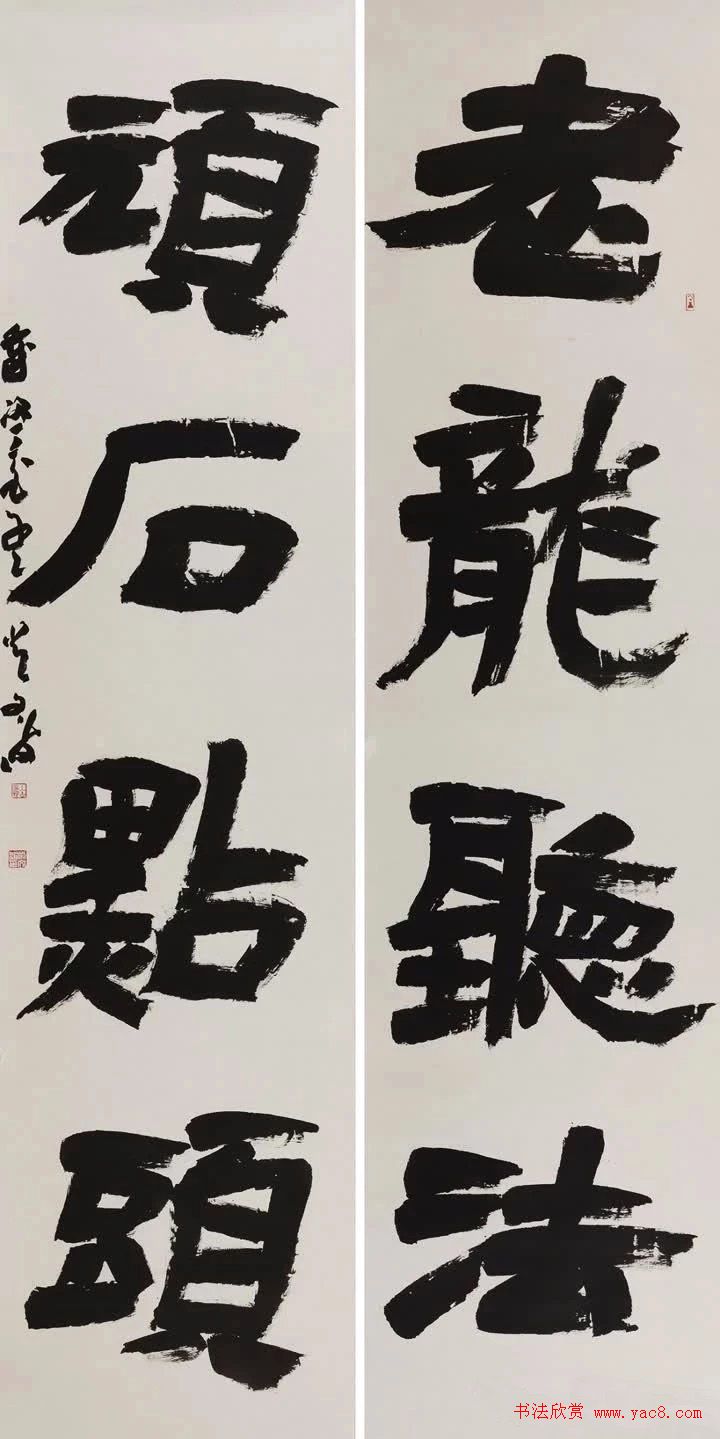 老龍聽法
頑石點頭
书法欣赏 www.yac8.com